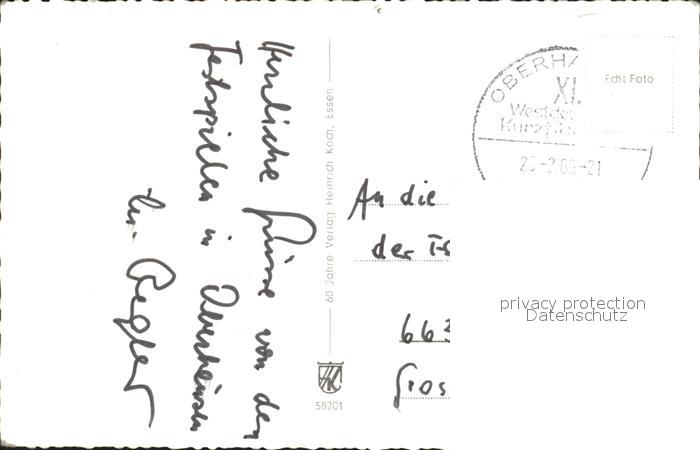 Herzliche Grüsse von den
Festspielen in Oberhausen
60 Jahre Verlag Heinrich Koch, Essen
58201
OBERHA
XI.
Westde
Kurzfi
Echt Foto
An die
der
663
Gros
privacy protection
Datenschutz